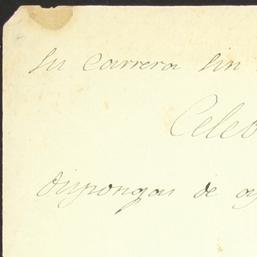 su carrera sin
Celeb
dispongas de